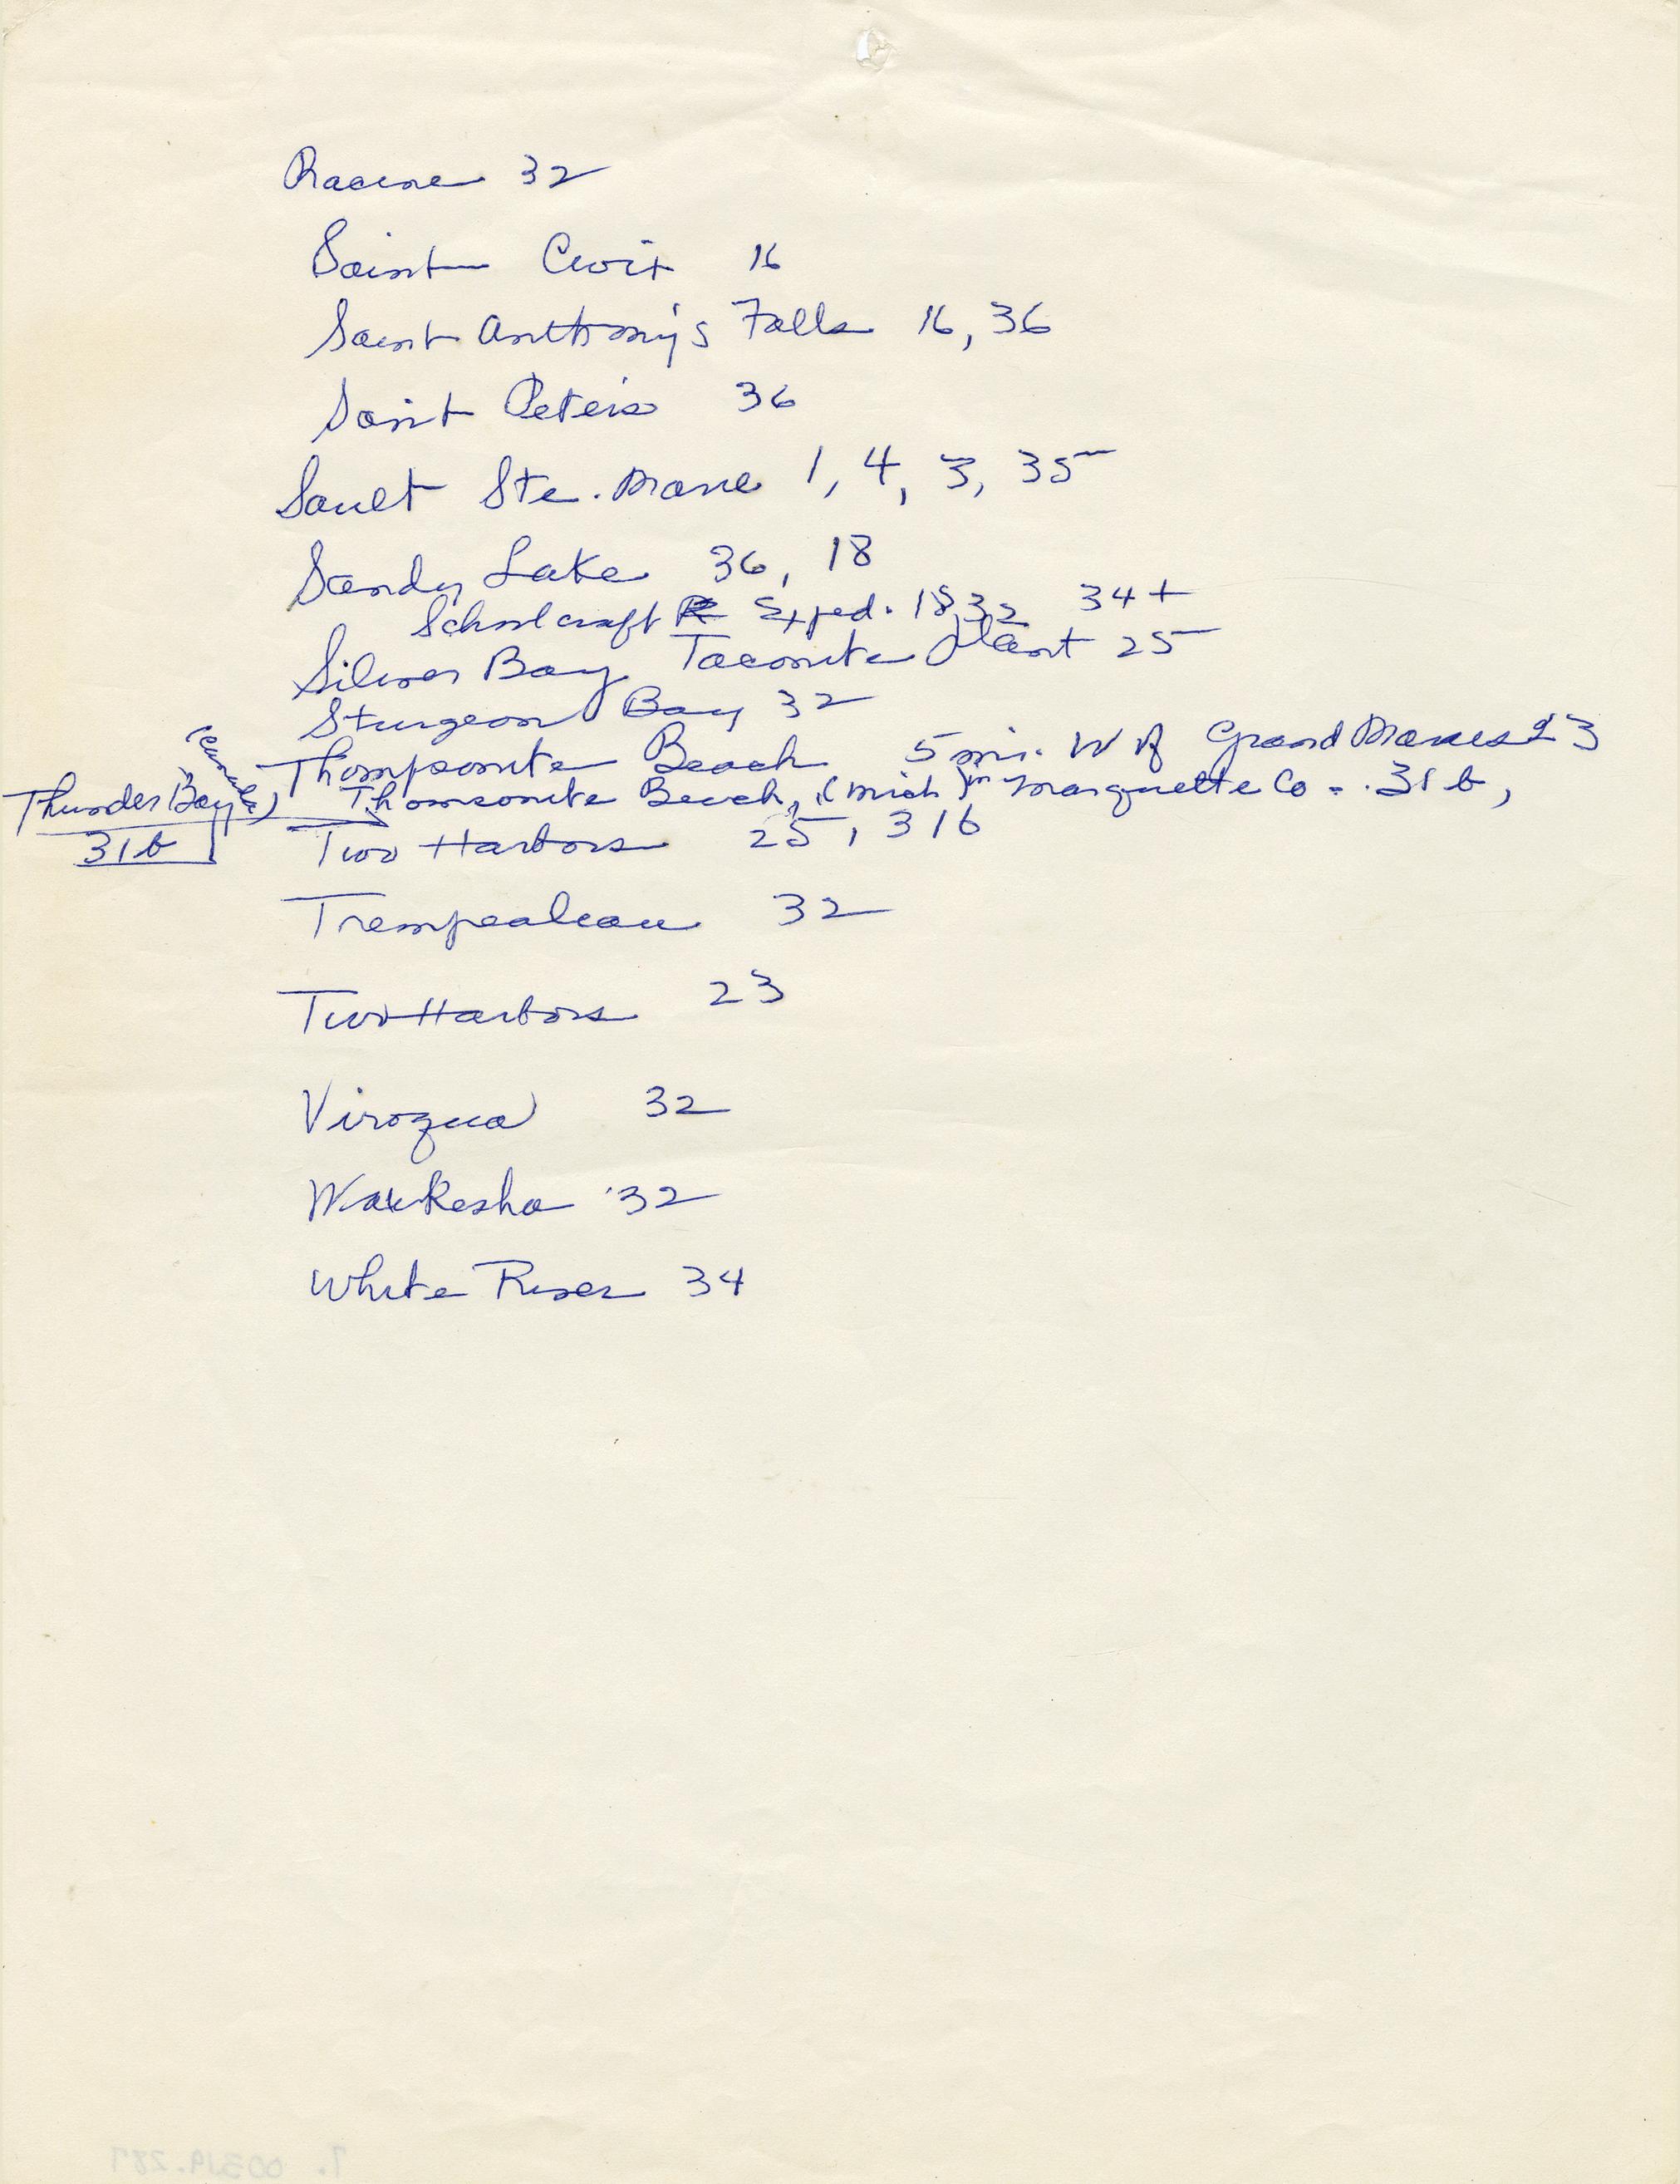 Racine 32
Saint Croix 16
Saint Anthony's Falls 16, 36
Saint Peter's 36
Sault Ste. Marie 1, 4, 3, 35
Sandy Lake 36, 18
Schoolcraft Exped. 1832 34+
Silver Bay Taconite Plant 25
Sturgeon Bay 32
Thompsonite Beach 5 mi. W of Grand Marais 23
Thomsonite Beach, (Mich) in Marquette Co. 31b,
Thunder Bay (Canada)
31b
Two Harbors 25, 31b
Trempealeau 32
Two Harbors 23
Viroqua 32
Waukesha 32
White River 34
7. 00319.287